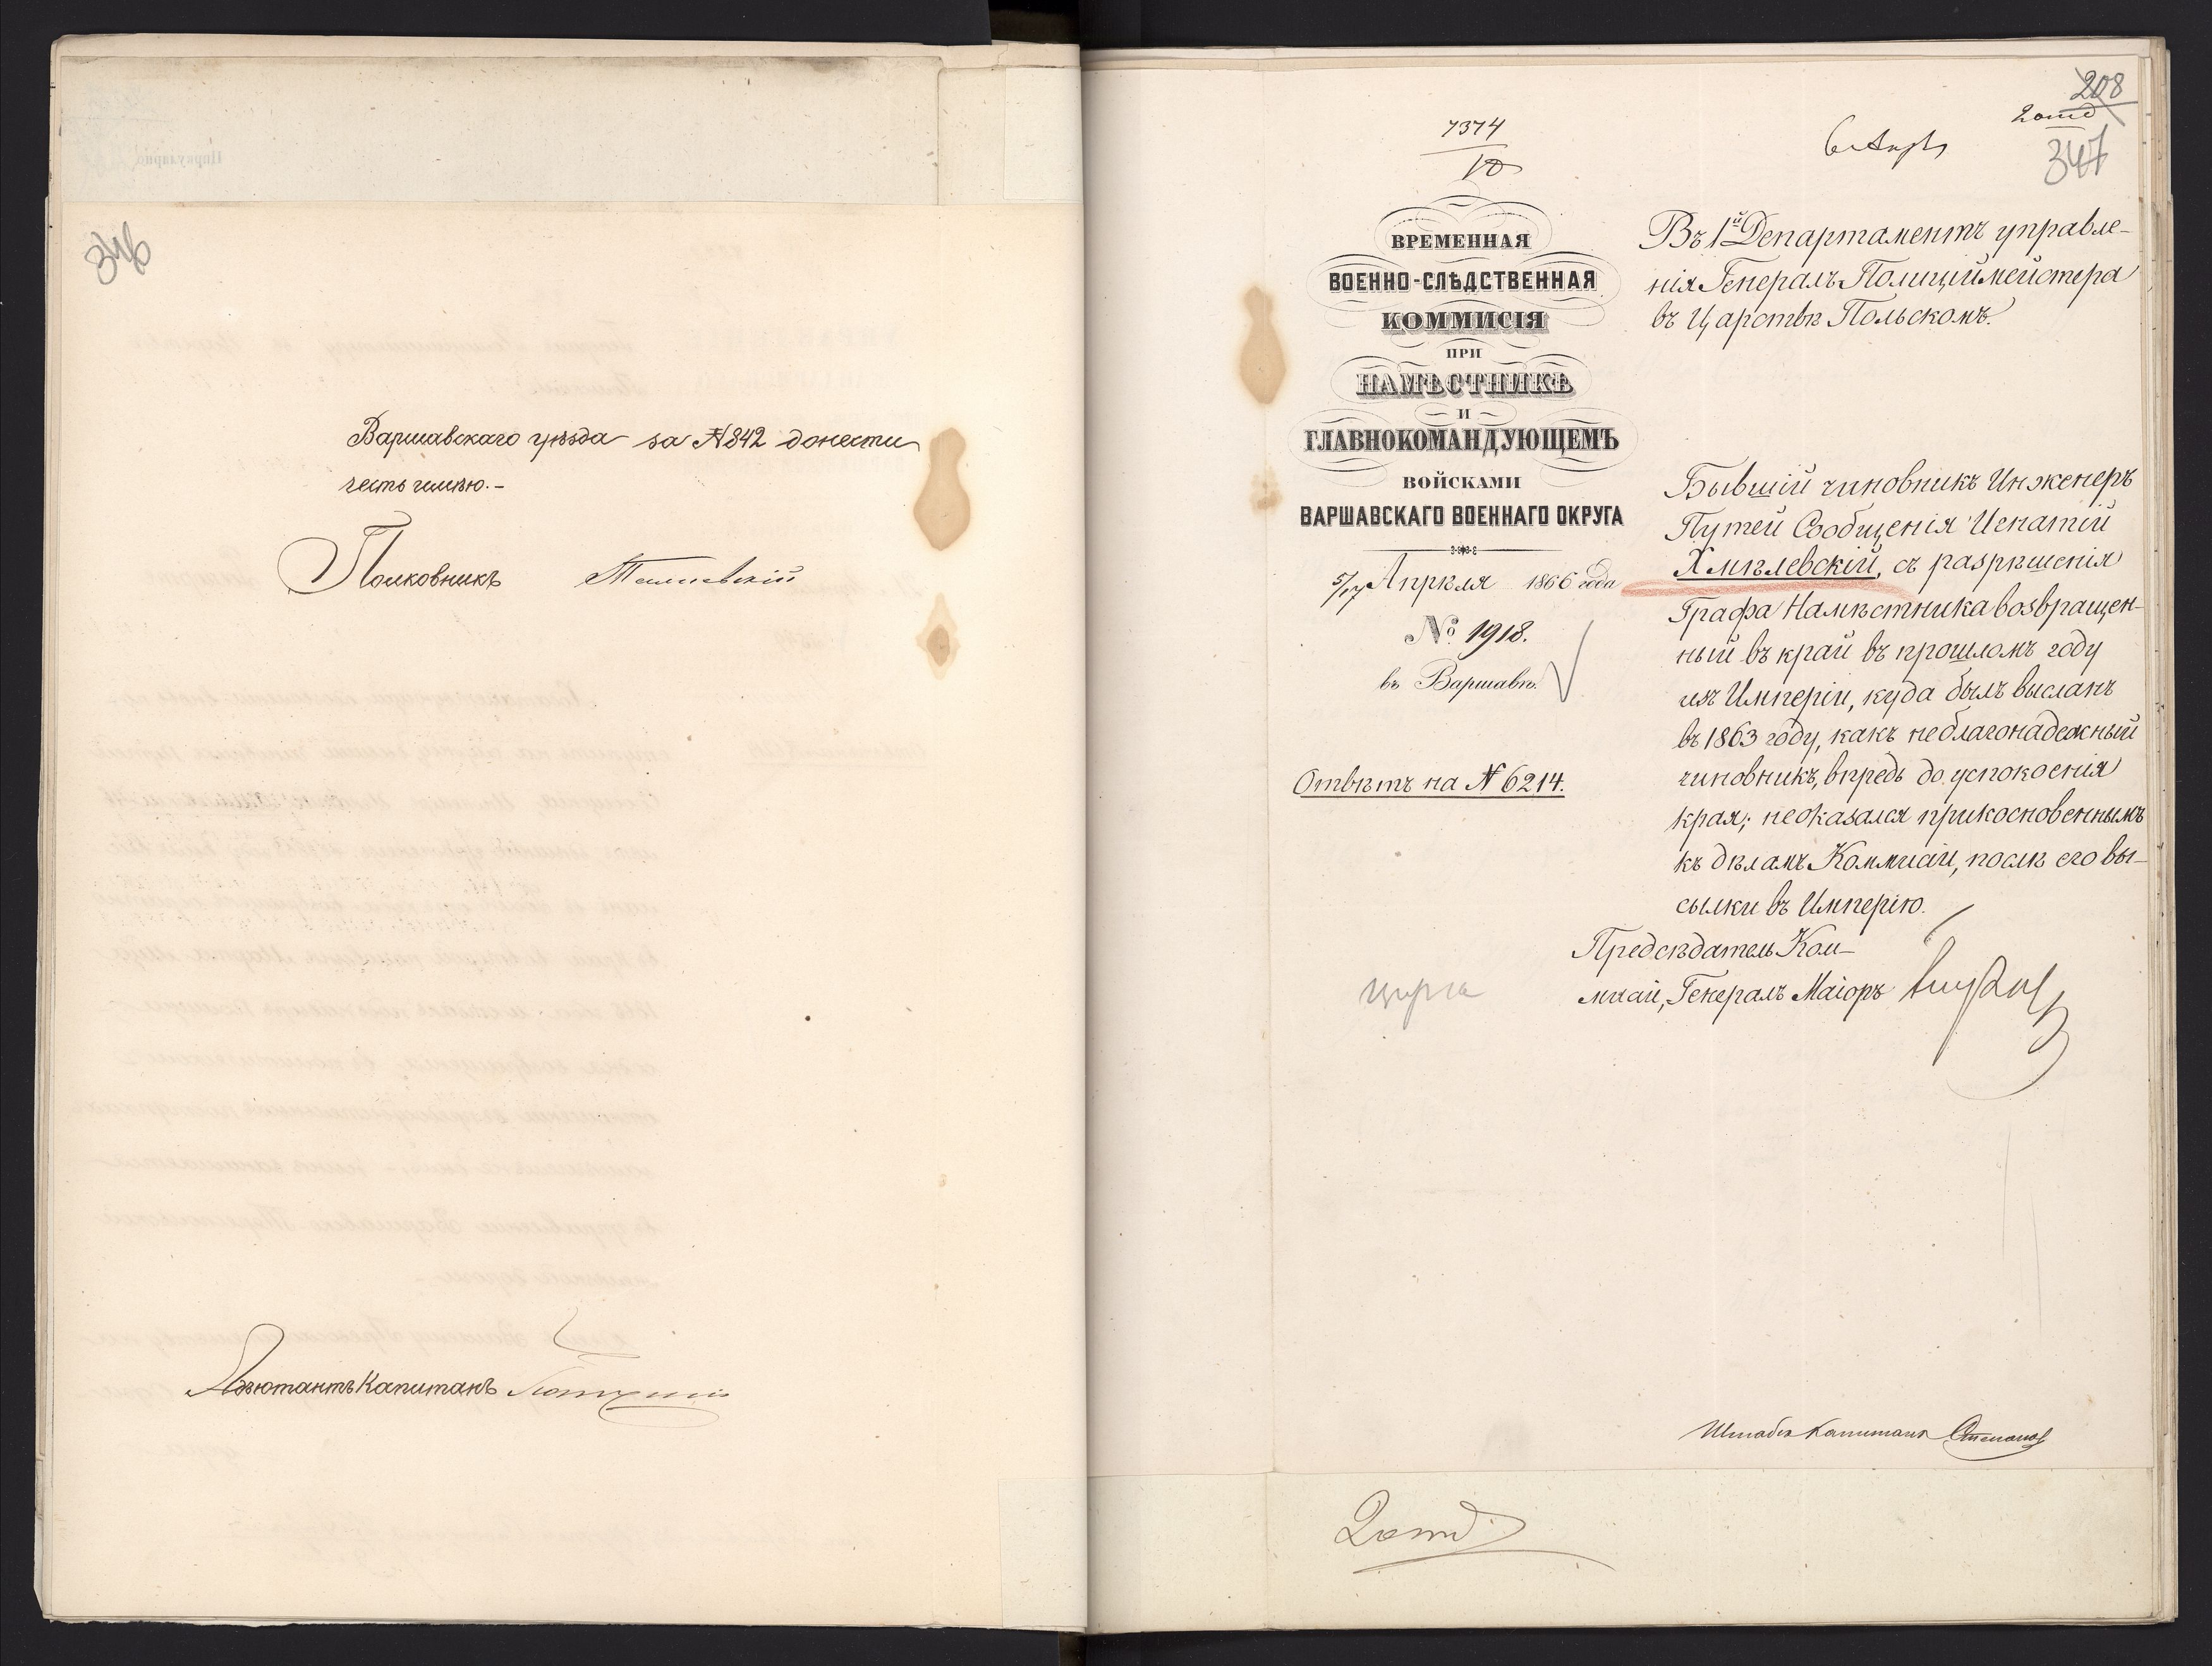 346
Варшавскаго уѣзда за № 842 донести
честь имѣю.-
Полковникъ
Адъютантъ Капитанъ
208
2 отд
347
6 Апрѣ
7374
10
ВРЕМЕННАЯ
ВОЕННО-СЛѢДСТВЕННАЯ
КОММИСІЯ
ПРИ
НАМѢСТНИКѢ
И
ГЛАВНОКОМАНДУЮЩЕМЪ
ВОЙСКАМИ
ВАРШАВСКАГО ВОЕННАГО ОКРУГА
5/17 Апрѣля 1866 года
№ 1918.
въ Варшавѣ.
Отвѣтъ на № 6214.
Въ 1й Департаментъ управле-
нія Генералъ Полиціймейстера
въ Царствѣ Польскомъ.
Бывшій чиновникъ Инженеръ
Путей Сообщенія Игнатій
Хмѣлевскій, съ разрѣшенія
Графа Намѣстника возвращен-
ный въ край въ прошломъ году
изъ Имперіи, куда былъ высланъ
въ 1863 году, какъ неблагонадежный
чиновникъ, впредь до успокоенія
края; неоказался прикосновеннымъ
къ дѣламъ Коммисіи, послѣ его вы-
сылки въ Имперію.
Предсѣдатель Ком-
мисіи, Генералъ Маіоръ
Штабсъ Капитанъ Степановъ
2 отд